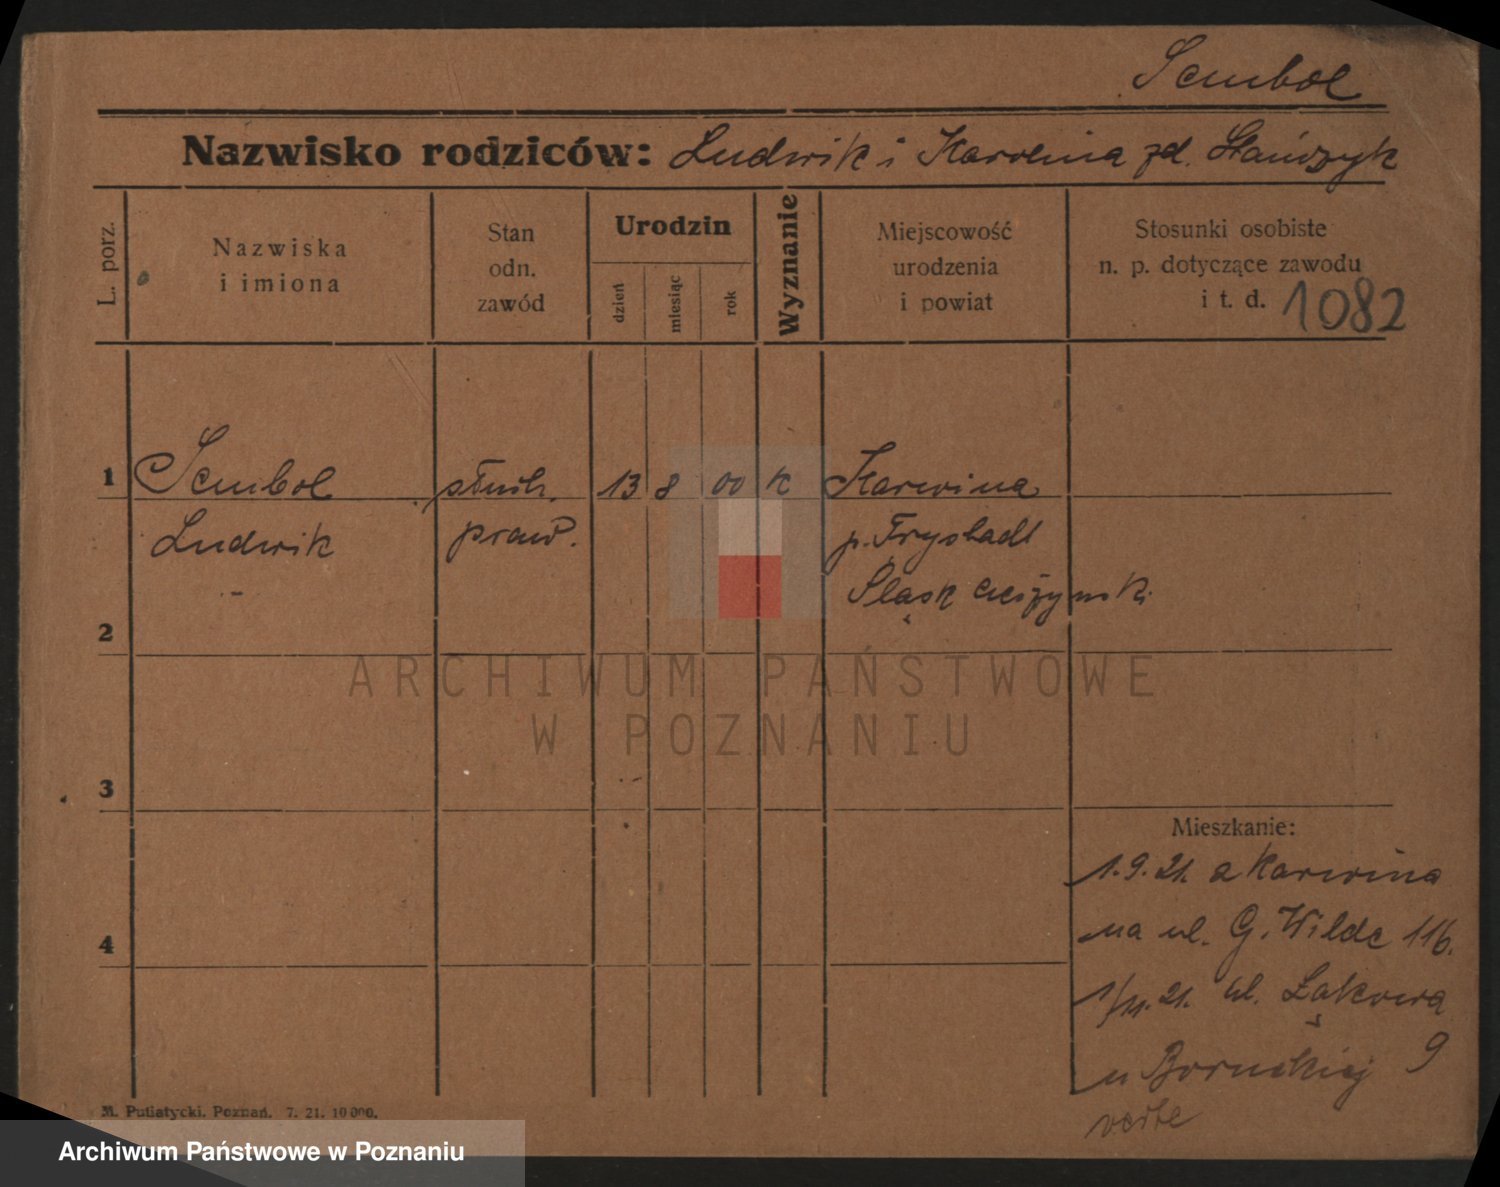 Sembol
Nazwisko rodziców: Ludwik i Karolina zd. Stańczyk
L. porz.
Nazwiska
i imiona
Stan
odn.
zawód
Urodzin
dzień
miesiąc
rok
Wyznanie
Miejscowość
urodzenia
i powiat
Stosunki osobiste
n. p. dotyczące zawodu
i t. d. 1082
1 Sembol słuch. 13 8 00 k Karwina
Ludwik praw. p. Frysztadt
Śląsk Cieszyński
2
ARCHIWUM PAŃSTWOWE
W POZNANIU
3
Mieszkanie:
1.9.21. z Karwina
4 na ul. G. Wilde 116.
1/11.21. ul. Łąkowa
9
u
M. Putiatycki. Poznań. 7. 21. 10 000.
verte
Archiwum Państwowe w Poznaniu